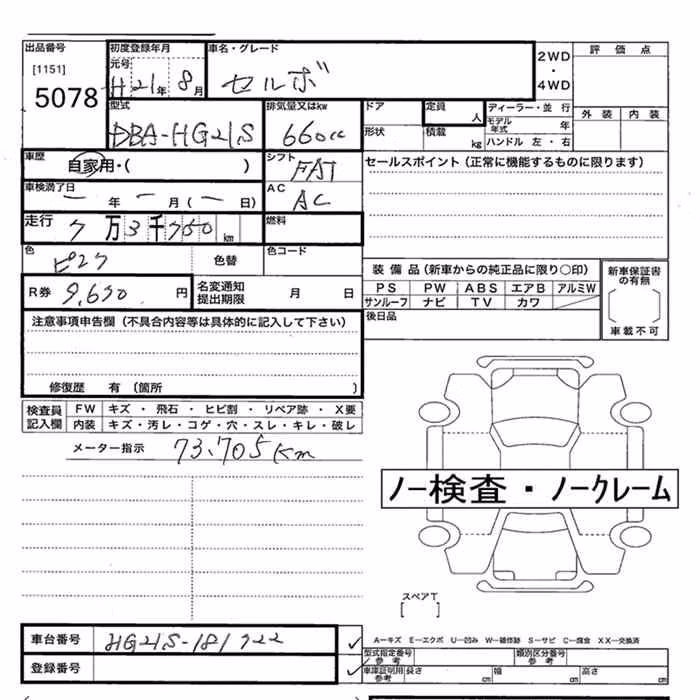 出品番号 初度登録年月 車名・グレード 2WD・4WD 評価点
[1151] 元号
5078 H21年 8月 セルボ
型式 排気量又はkw ドア 定員 人 ディーラー・並行 外装 内装
DBA-HG21S 660cc 形状 積載 kg モデル年式 年 ハンドル 左・右
車歴 自家用・( ) シフト FAT セールスポイント(正常に機能するものに限ります)
車検満了日 ー 年 ー 月(ー 日) AC AC
走行 7万3千750km 燃料
色 ピンク 色替 色コード
装備品(新車からの純正品に限り○印) 新車保証書の有無
R券 9,690円 名変通知提出期限 月 日 PS PW ABS エアB アルミW
サンルーフ ナビ TV カワ
注意事項申告欄(不具合内容等は具体的に記入して下さい) 後日品 車載不可
修復歴 有(箇所 )
検査員記入欄 FW キズ・飛石・ヒビ割・リペア跡・X要
内装 キズ・汚レ・コゲ・穴・スレ・キレ・破レ
メーター指示 73,705Km
ノー検査・ノークレーム
スペアT
[ ]
車台番号 HG21S-181722
A―キズ E―エクボ U―凹み W―補修跡 S―サビ C―腐食 XX―交換済
型式指定番号 参考 類別区分番号 参考
登録番号 車庫証明用参考 長さ cm 幅 cm 高さ cm